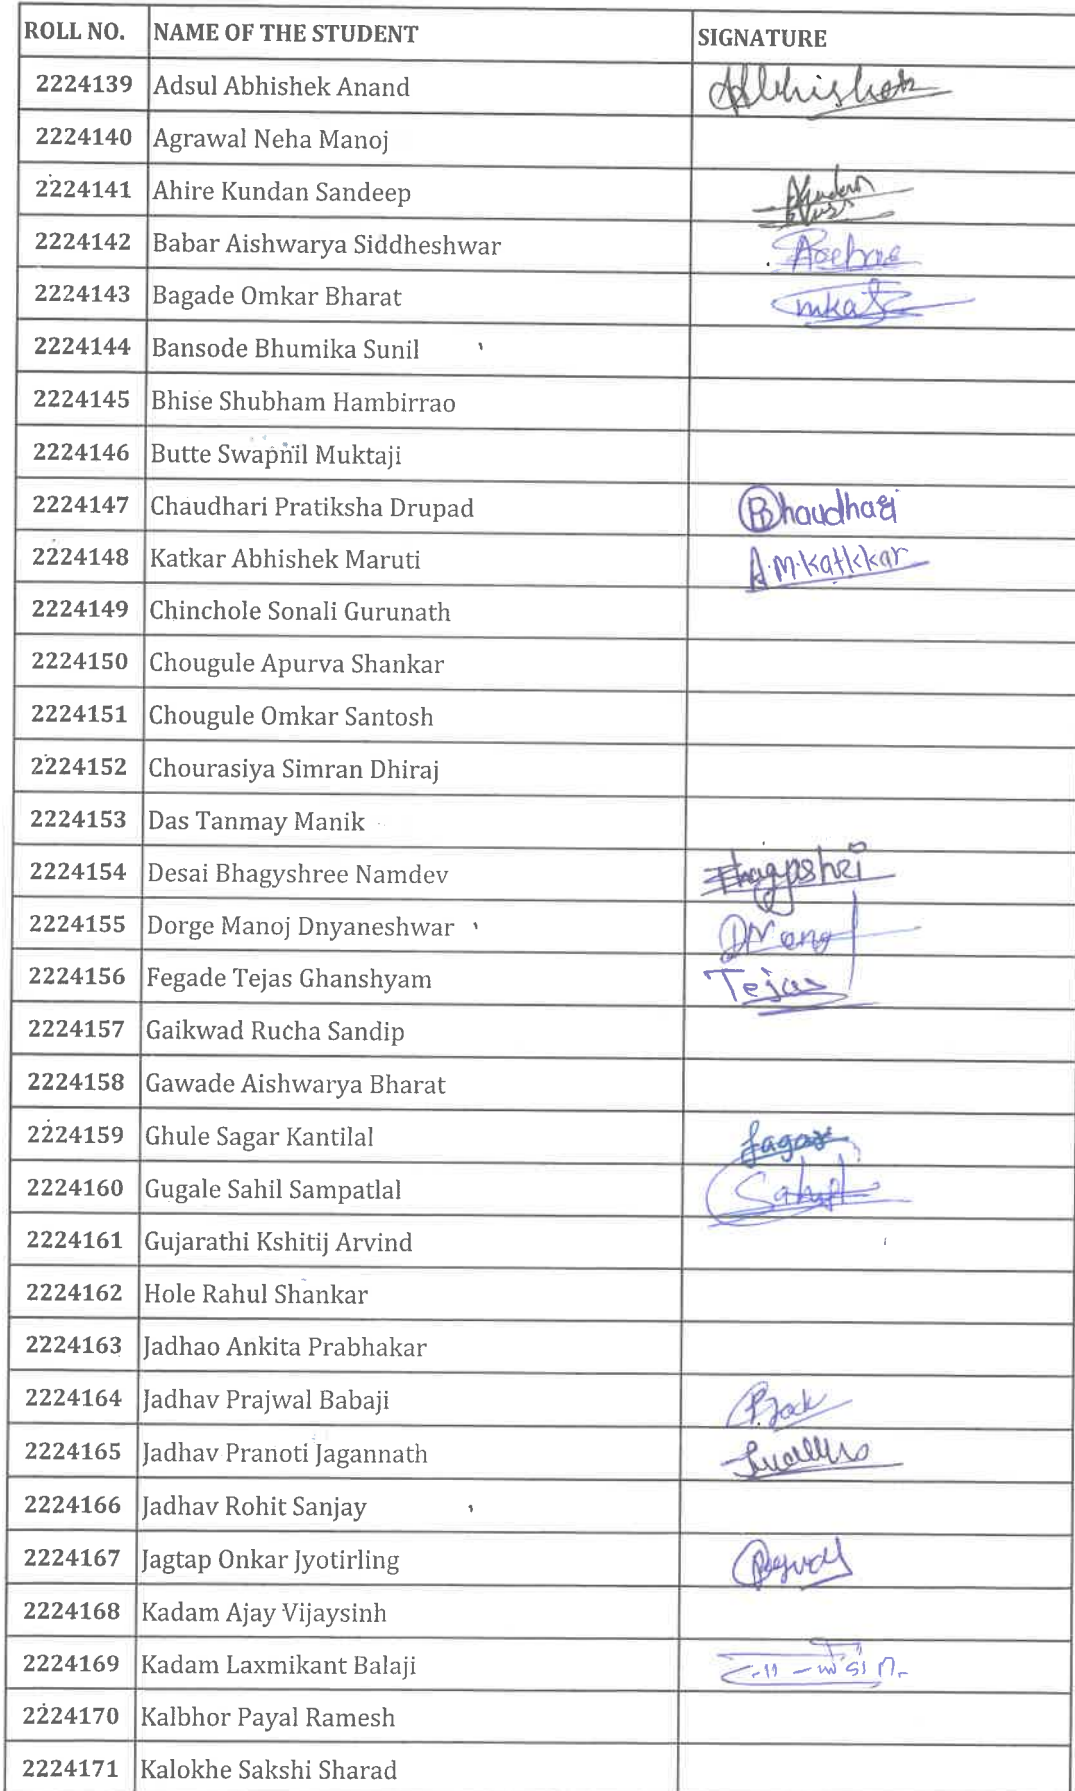 ROLL NO. NAME OF THE STUDENT SIGNATURE
2224139 Adsul Abhishek Anand Abhishek
2224140 Agrawal Neha Manoj
2224141 Ahire Kundan Sandeep
2224142 Babar Aishwarya Siddheshwar
2224143 Bagade Omkar Bharat
2224144 Bansode Bhumika Sunil
2224145 Bhise Shubham Hambirrao
2224146 Butte Swapnil Muktaji
2224147 Chaudhari Pratiksha Drupad
2224148 Katkar Abhishek Maruti A.M.Katkar
2224149 Chinchole Sonali Gurunath
2224150 Chougule Apurva Shankar
2224151 Chougule Omkar Santosh
2224152 Chourasiya Simran Dhiraj
2224153 Das Tanmay Manik
2224154 Desai Bhagyshree Namdev
2224155 Dorge Manoj Dnyaneshwar
2224156 Fegade Tejas Ghanshyam Tejas
2224157 Gaikwad Rucha Sandip
2224158 Gawade Aishwarya Bharat
2224159 Ghule Sagar Kantilal Sagar
2224160 Gugale Sahil Sampatlal
2224161 Gujarathi Kshitij Arvind
2224162 Hole Rahul Shankar
2224163 Jadhao Ankita Prabhakar
2224164 Jadhav Prajwal Babaji
2224165 Jadhav Pranoti Jagannath
2224166 Jadhav Rohit Sanjay
2224167 Jagtap Onkar Jyotirling
2224168 Kadam Ajay Vijaysinh
2224169 Kadam Laxmikant Balaji
2224170 Kalbhor Payal Ramesh
2224171 Kalokhe Sakshi Sharad